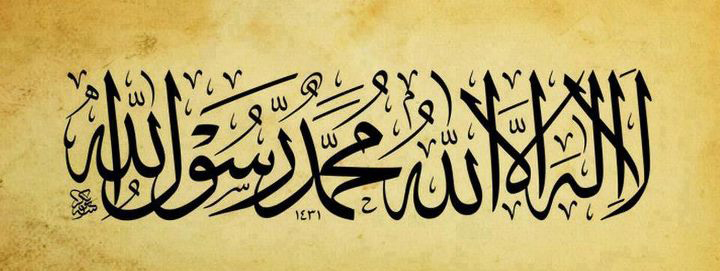 لَا إِلٰهَ إِلَّا اللّٰهُ مُحَمَّدٌ رَسُولُ اللّٰهِ
١٤٣١